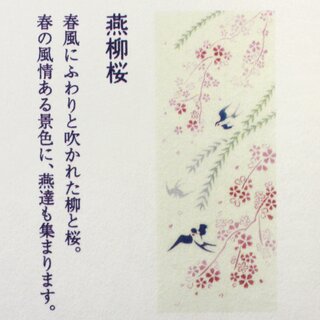 燕柳桜
春風にふわりと吹かれた柳と桜。
春の風情ある景色に、燕達も集まります。